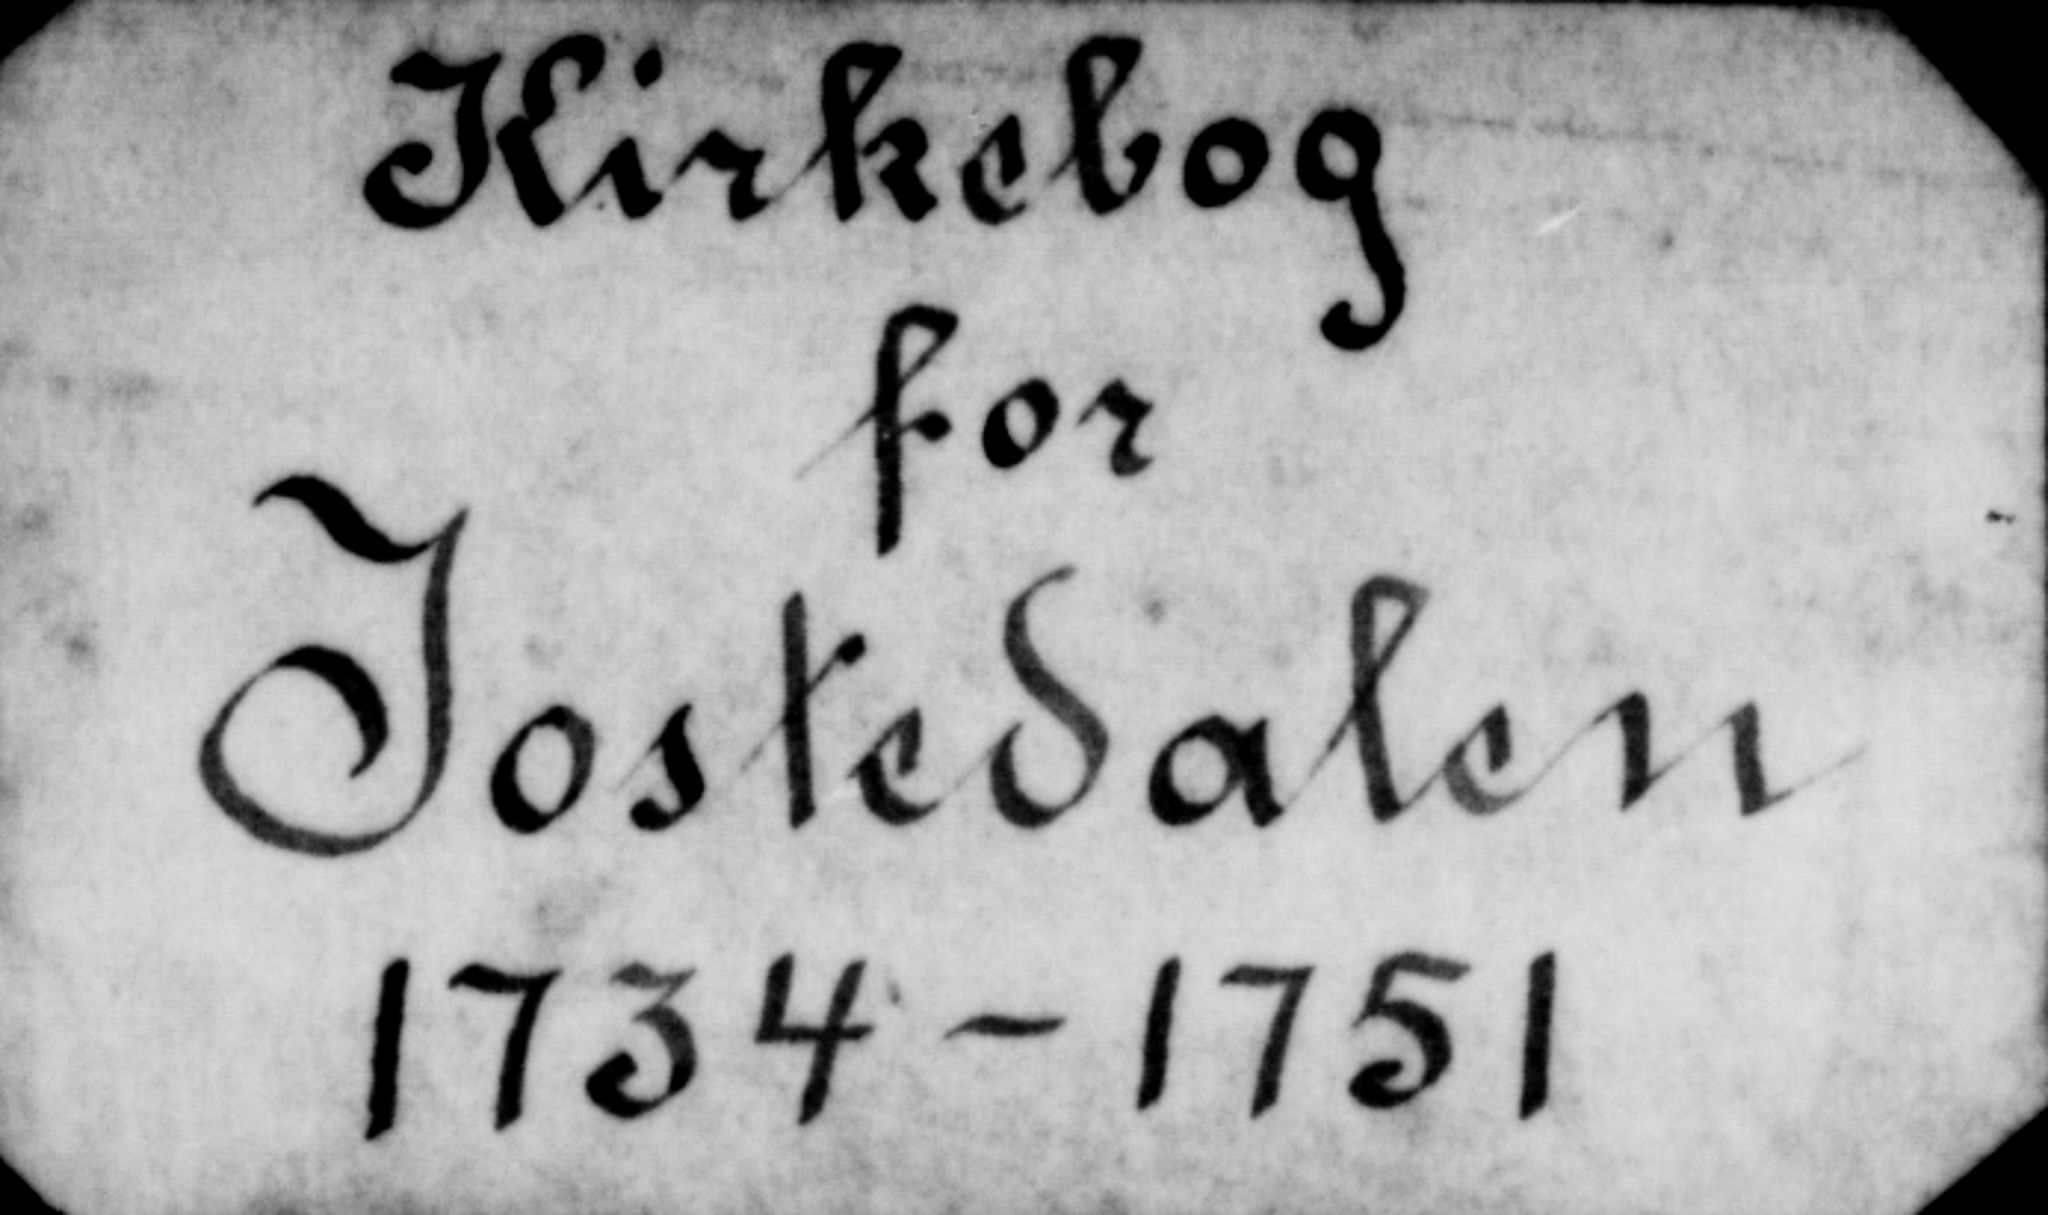 Kirkebog
for
Jostedalen
1734-1751